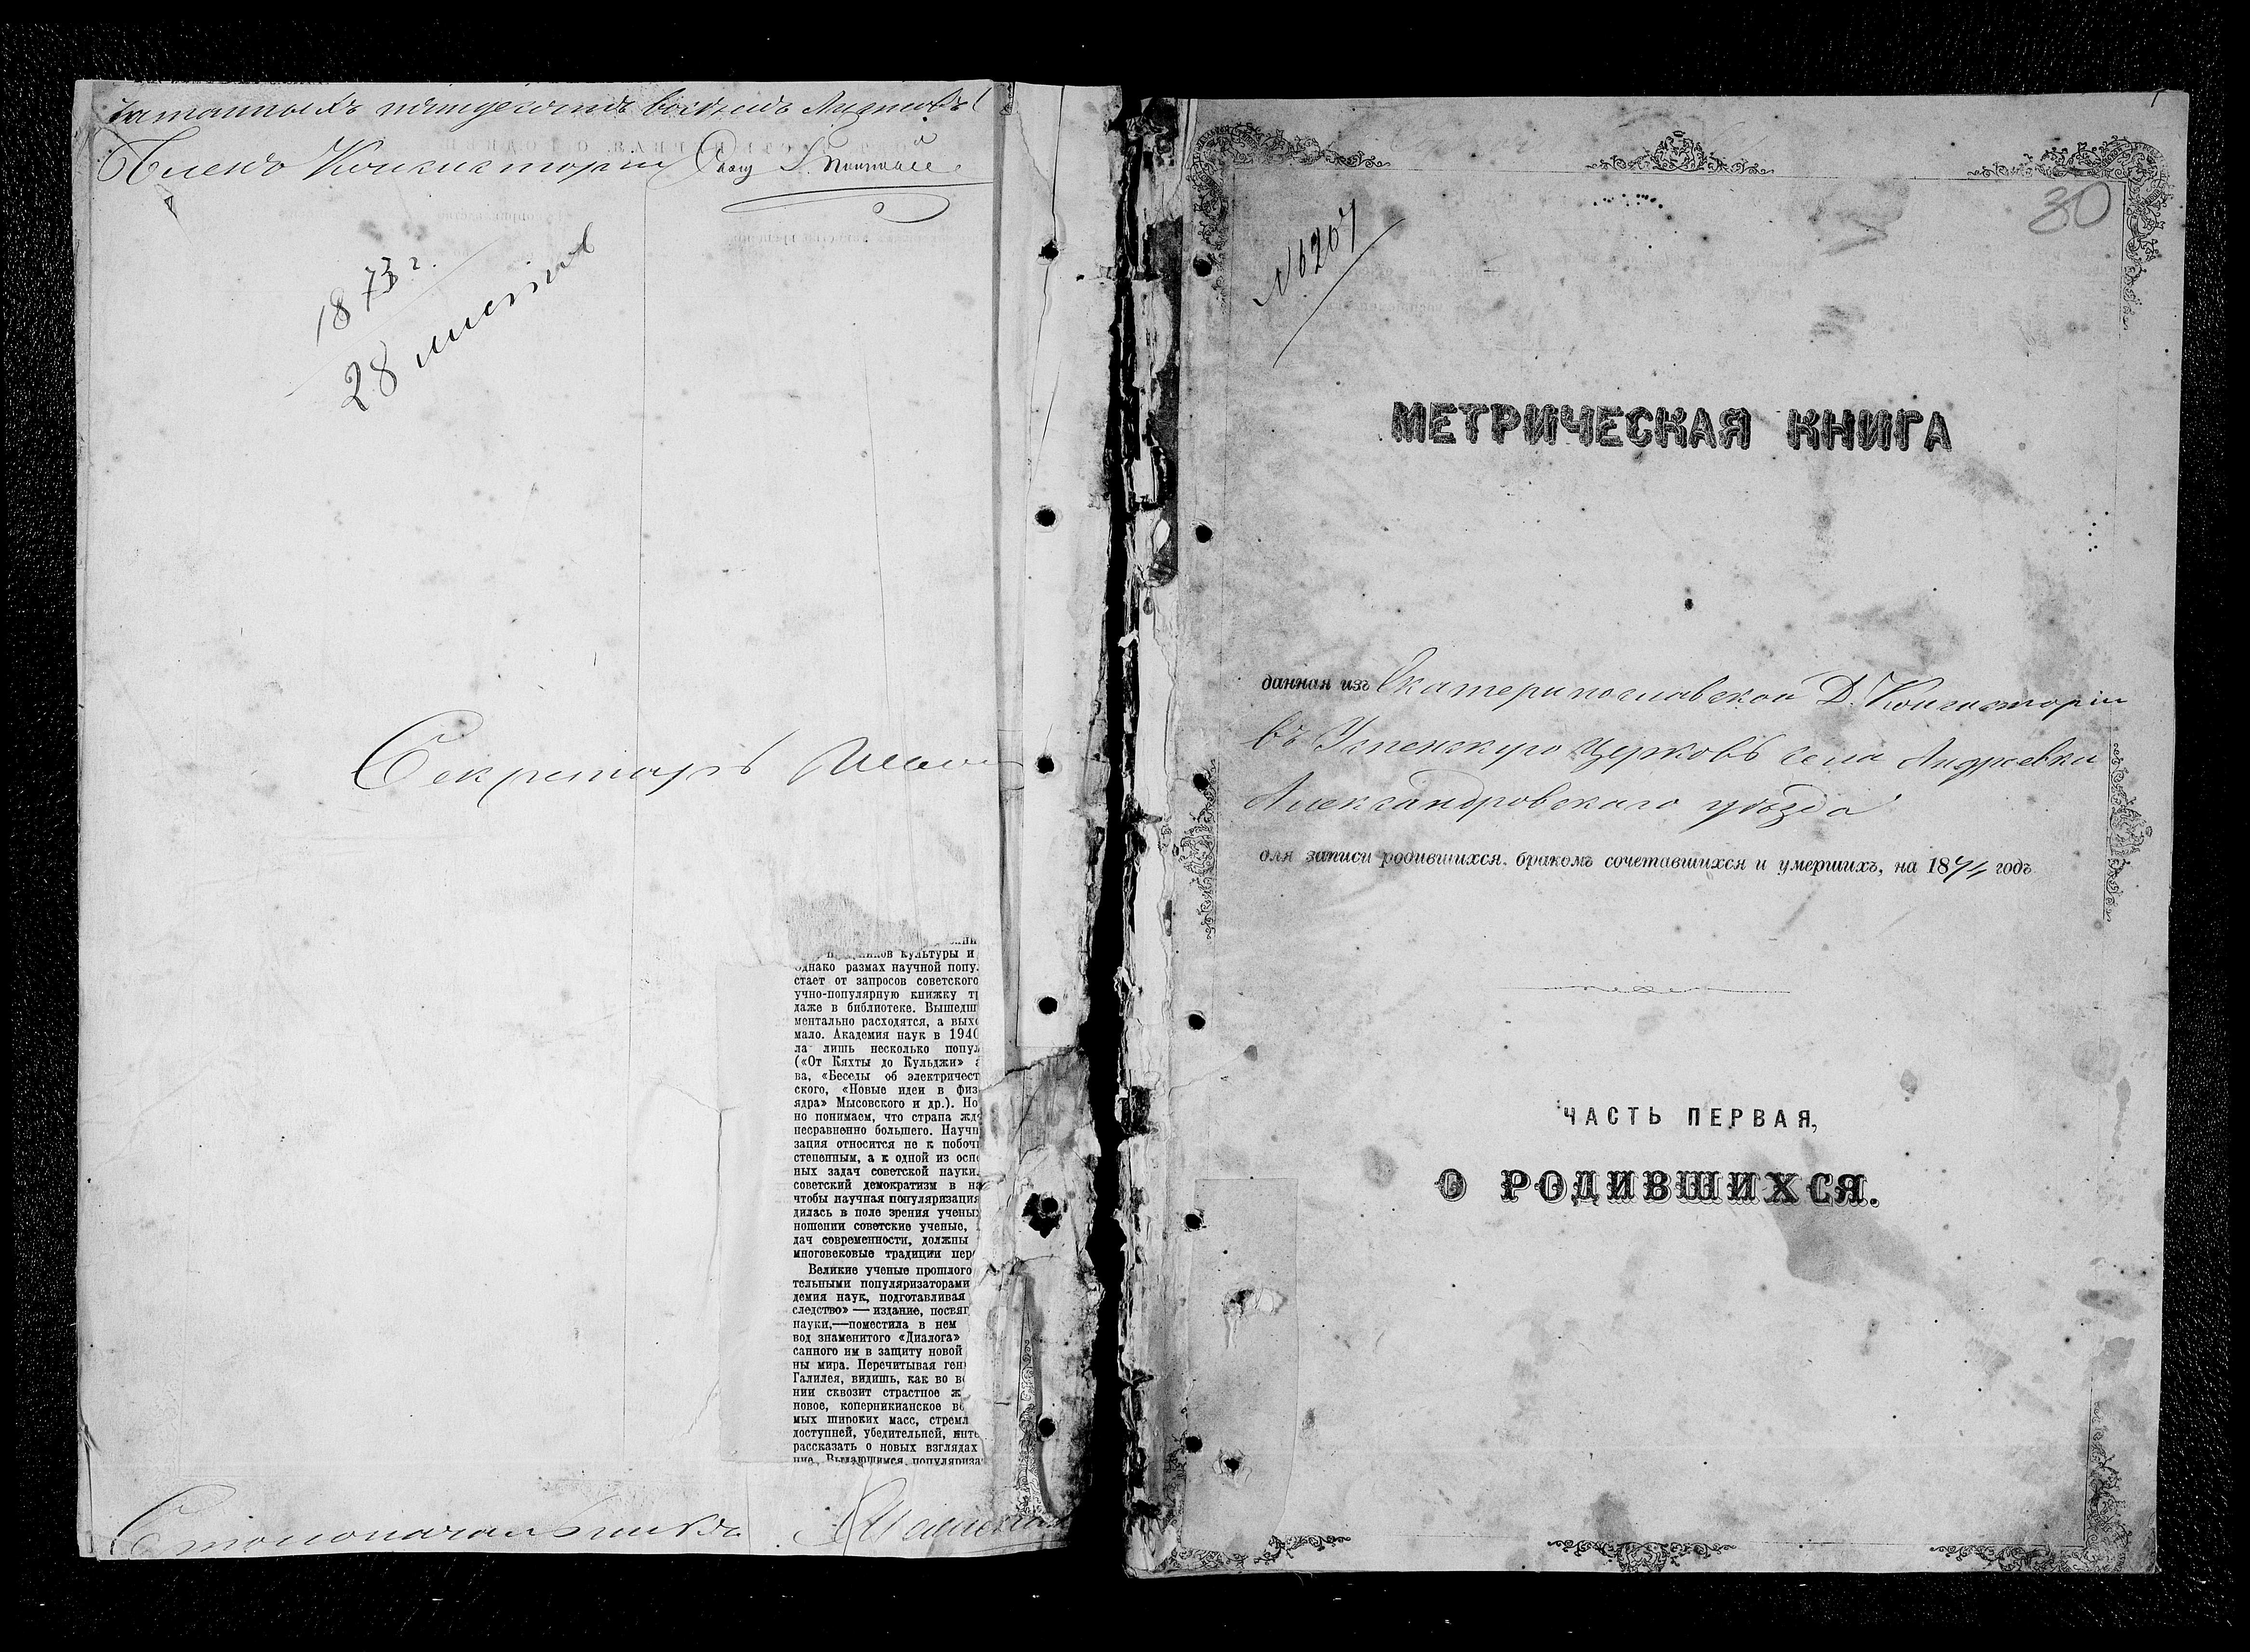 пятидесяти восьми листовъ
Членъ Консисторіи
1873 г.
28 листов
Секретарь
культуры и
однако размах научной попу
стает от запросов советского
учно-популярную книжку т
даже в библиотеке. Вышедш
ментально расходятся, а вых
мало. Академия наук в 1940
ла лишь несколько попул
(«От Кяхты до Кульджи»
ва, «Беседы об электричест
ского, «Новые идеи в физ
ядра» Мысовского и др.). Но
но понимаем, что страна жд
несравненно большего. Научн
зация относится не к побоч
степенным, а к одной из осн
ных задач советской науки.
советский демократизм в на
чтобы научная популяризация
дилась в поле зрения ученых
ношении советские ученые,
дач современности, должны
многовековые традиции пер
Великие ученые прошлого
тельными популяризаторами
демия наук, подготавливая
следство» — издание, посвящ
науки,—поместила в нем
вод знаменитого «Диалога»
санного им в защиту новой
ны мира. Перечитывая ген
Галилея, видишь, как во в
нии сквозит страстное ж
новое, коперникианское в
мых широких масс, стремл
доступней, убедительней, инте
рассказать о новых взглядах
ние. Выдающимся популяриза
Столоначальникъ
80
№6207
МЕТРИЧЕСКАЯ КНИГА
данная изъ Екатеринославской Д. Консисторіи
въ Успенскую Церковь села Андреевки
Александровскаго уѣзда
для записи родившихся, бракомъ сочетавшихся и умершихъ, на 1874 годъ
ЧАСТЬ ПЕРВАЯ,
О РОДИВШИХСЯ.